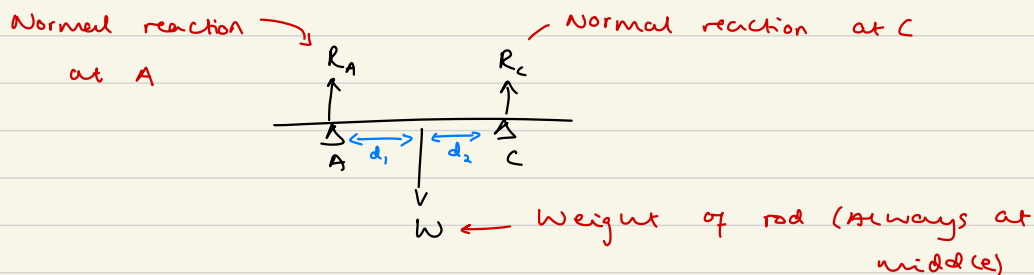 Normal reaction
at A
Normal reaction at C
R_A
R_C
d_1
d_2
A
C
W
Weight of rod (Always at
middle)